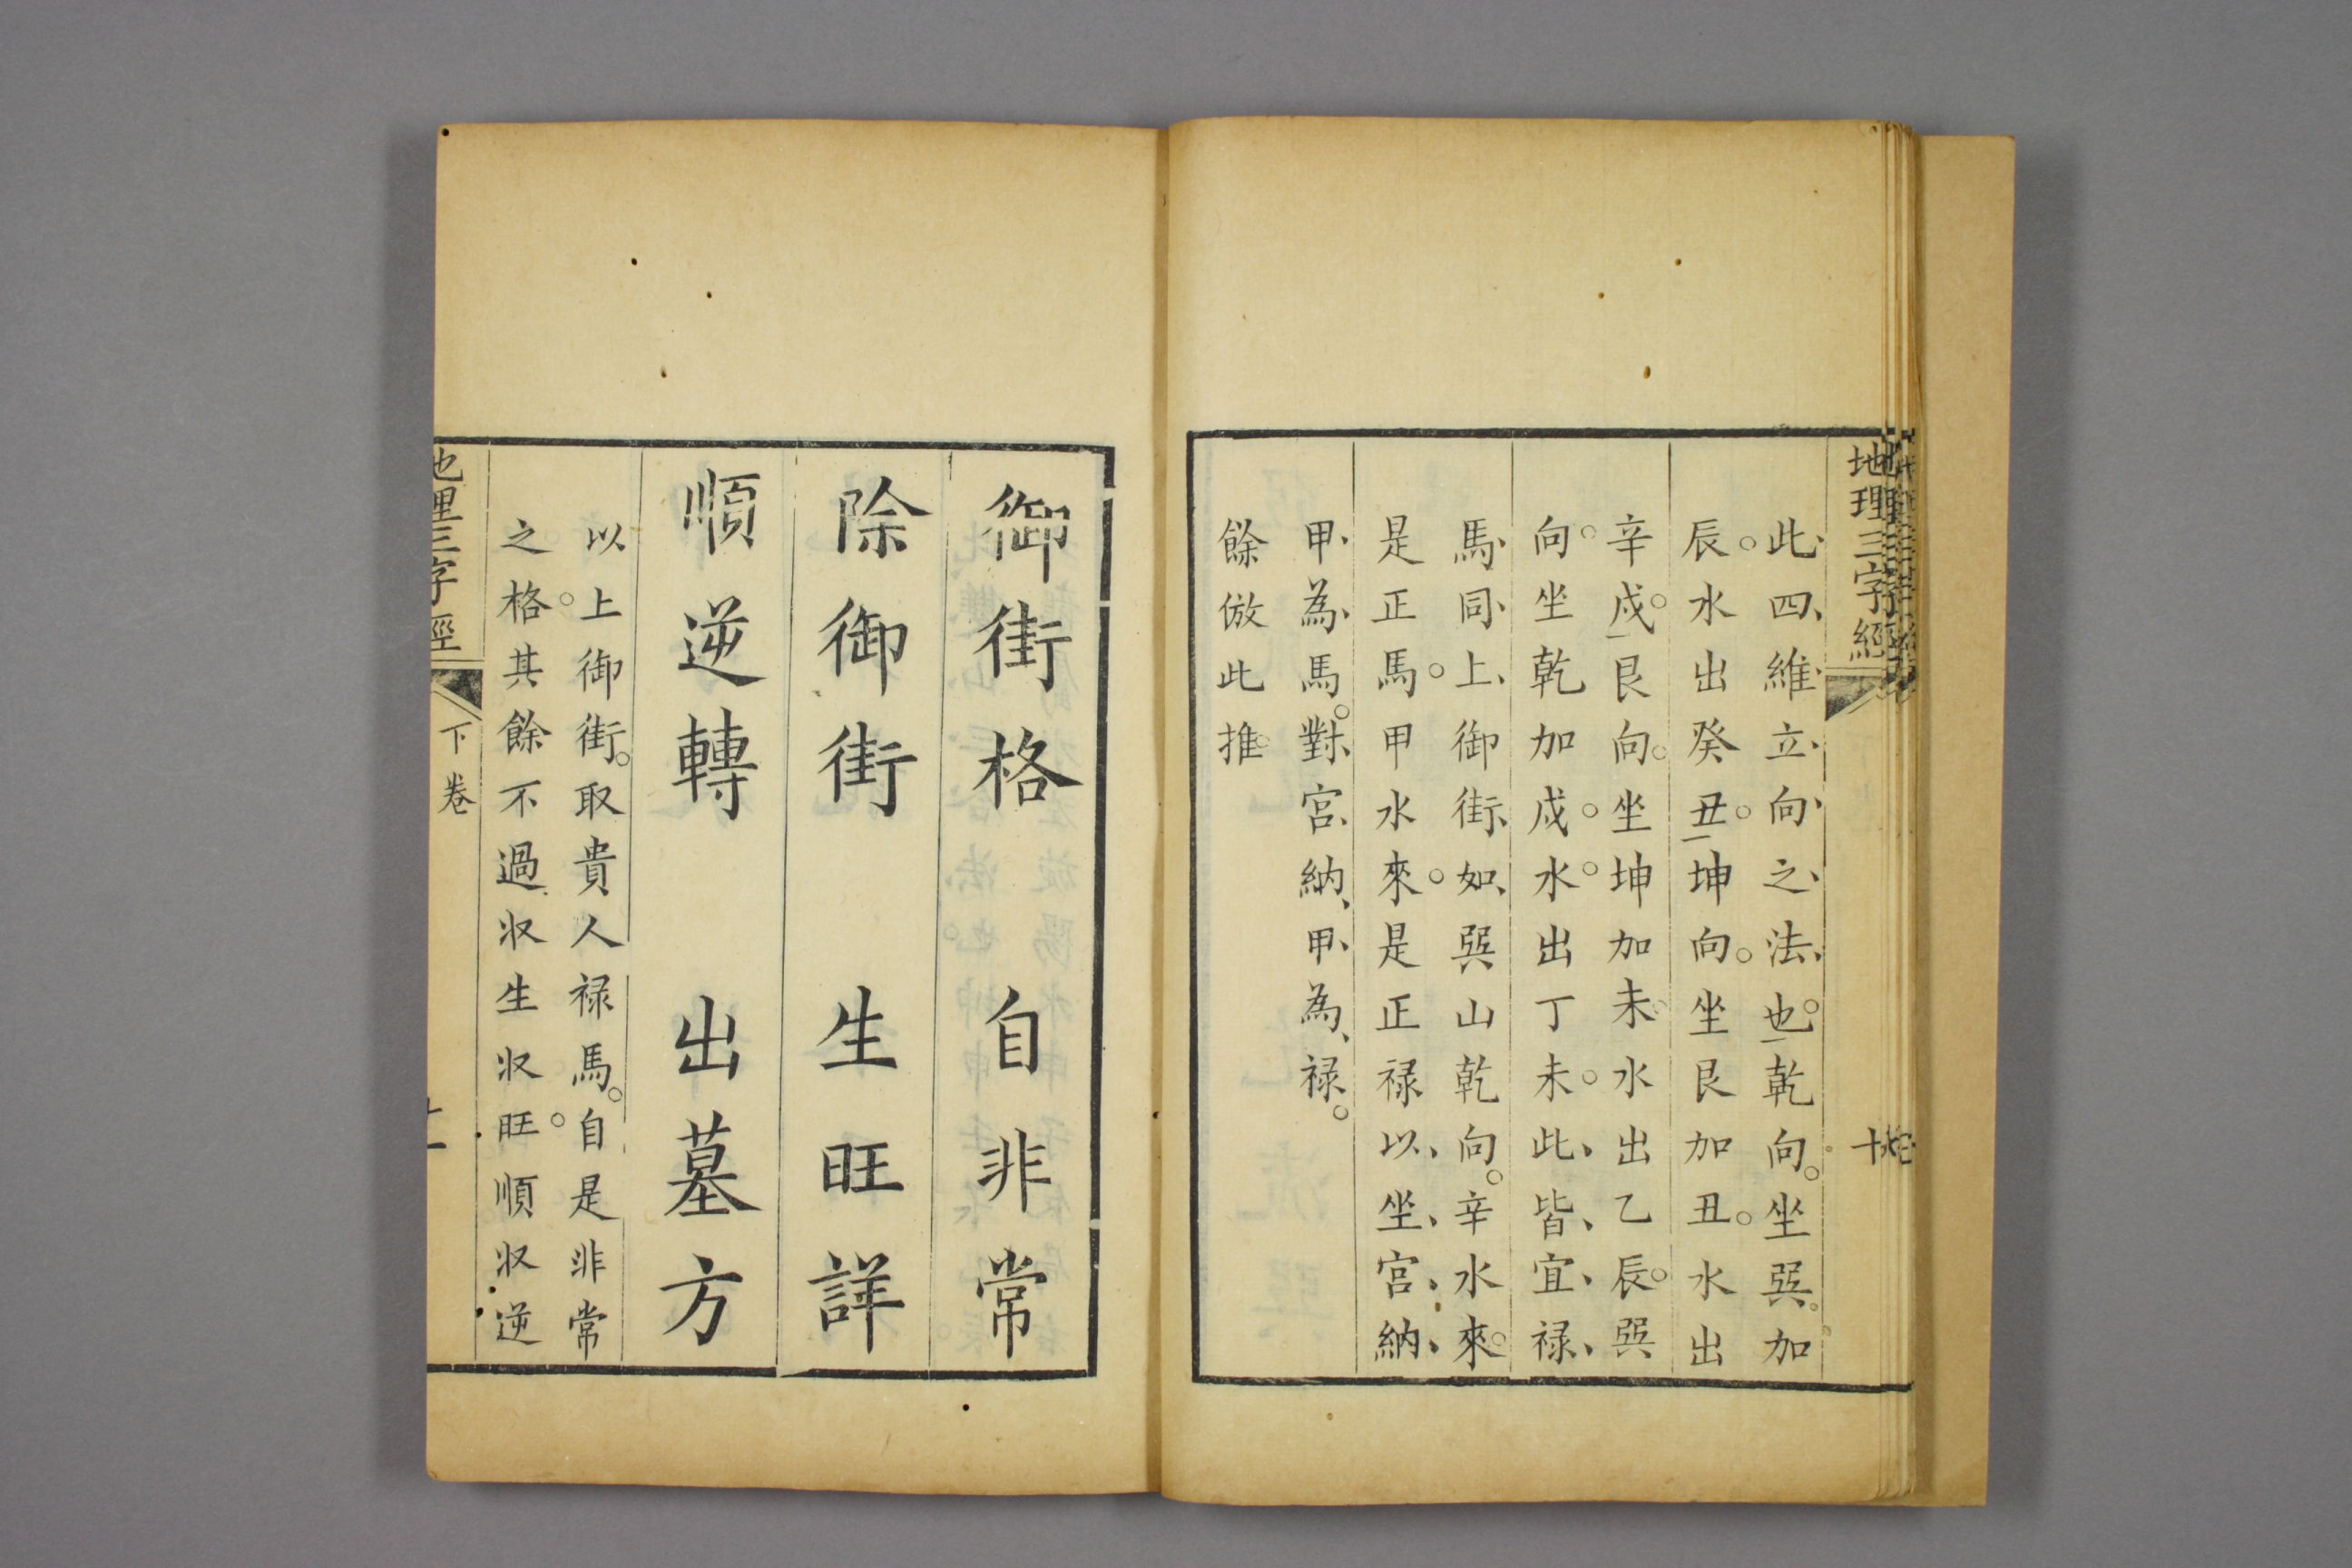 地理三字經
十
此四維立向之法也乾向坐巽加
辰水出癸丑坤向坐艮加丑水出
辛戌艮向坐坤加未水出乙辰巽
向坐乾加戌水出丁未此皆宜禄
馬同上御街如巽山乾向辛水來
是正馬甲水來是正禄以坐宮納
甲為馬對宮納甲為禄
餘倣此推
御街格 自非常
除御街 生旺詳
順逆轉 出墓方
以上御街取貴人禄馬自是非常
之格其餘不過収生収旺順収逆
地理三字經
下卷